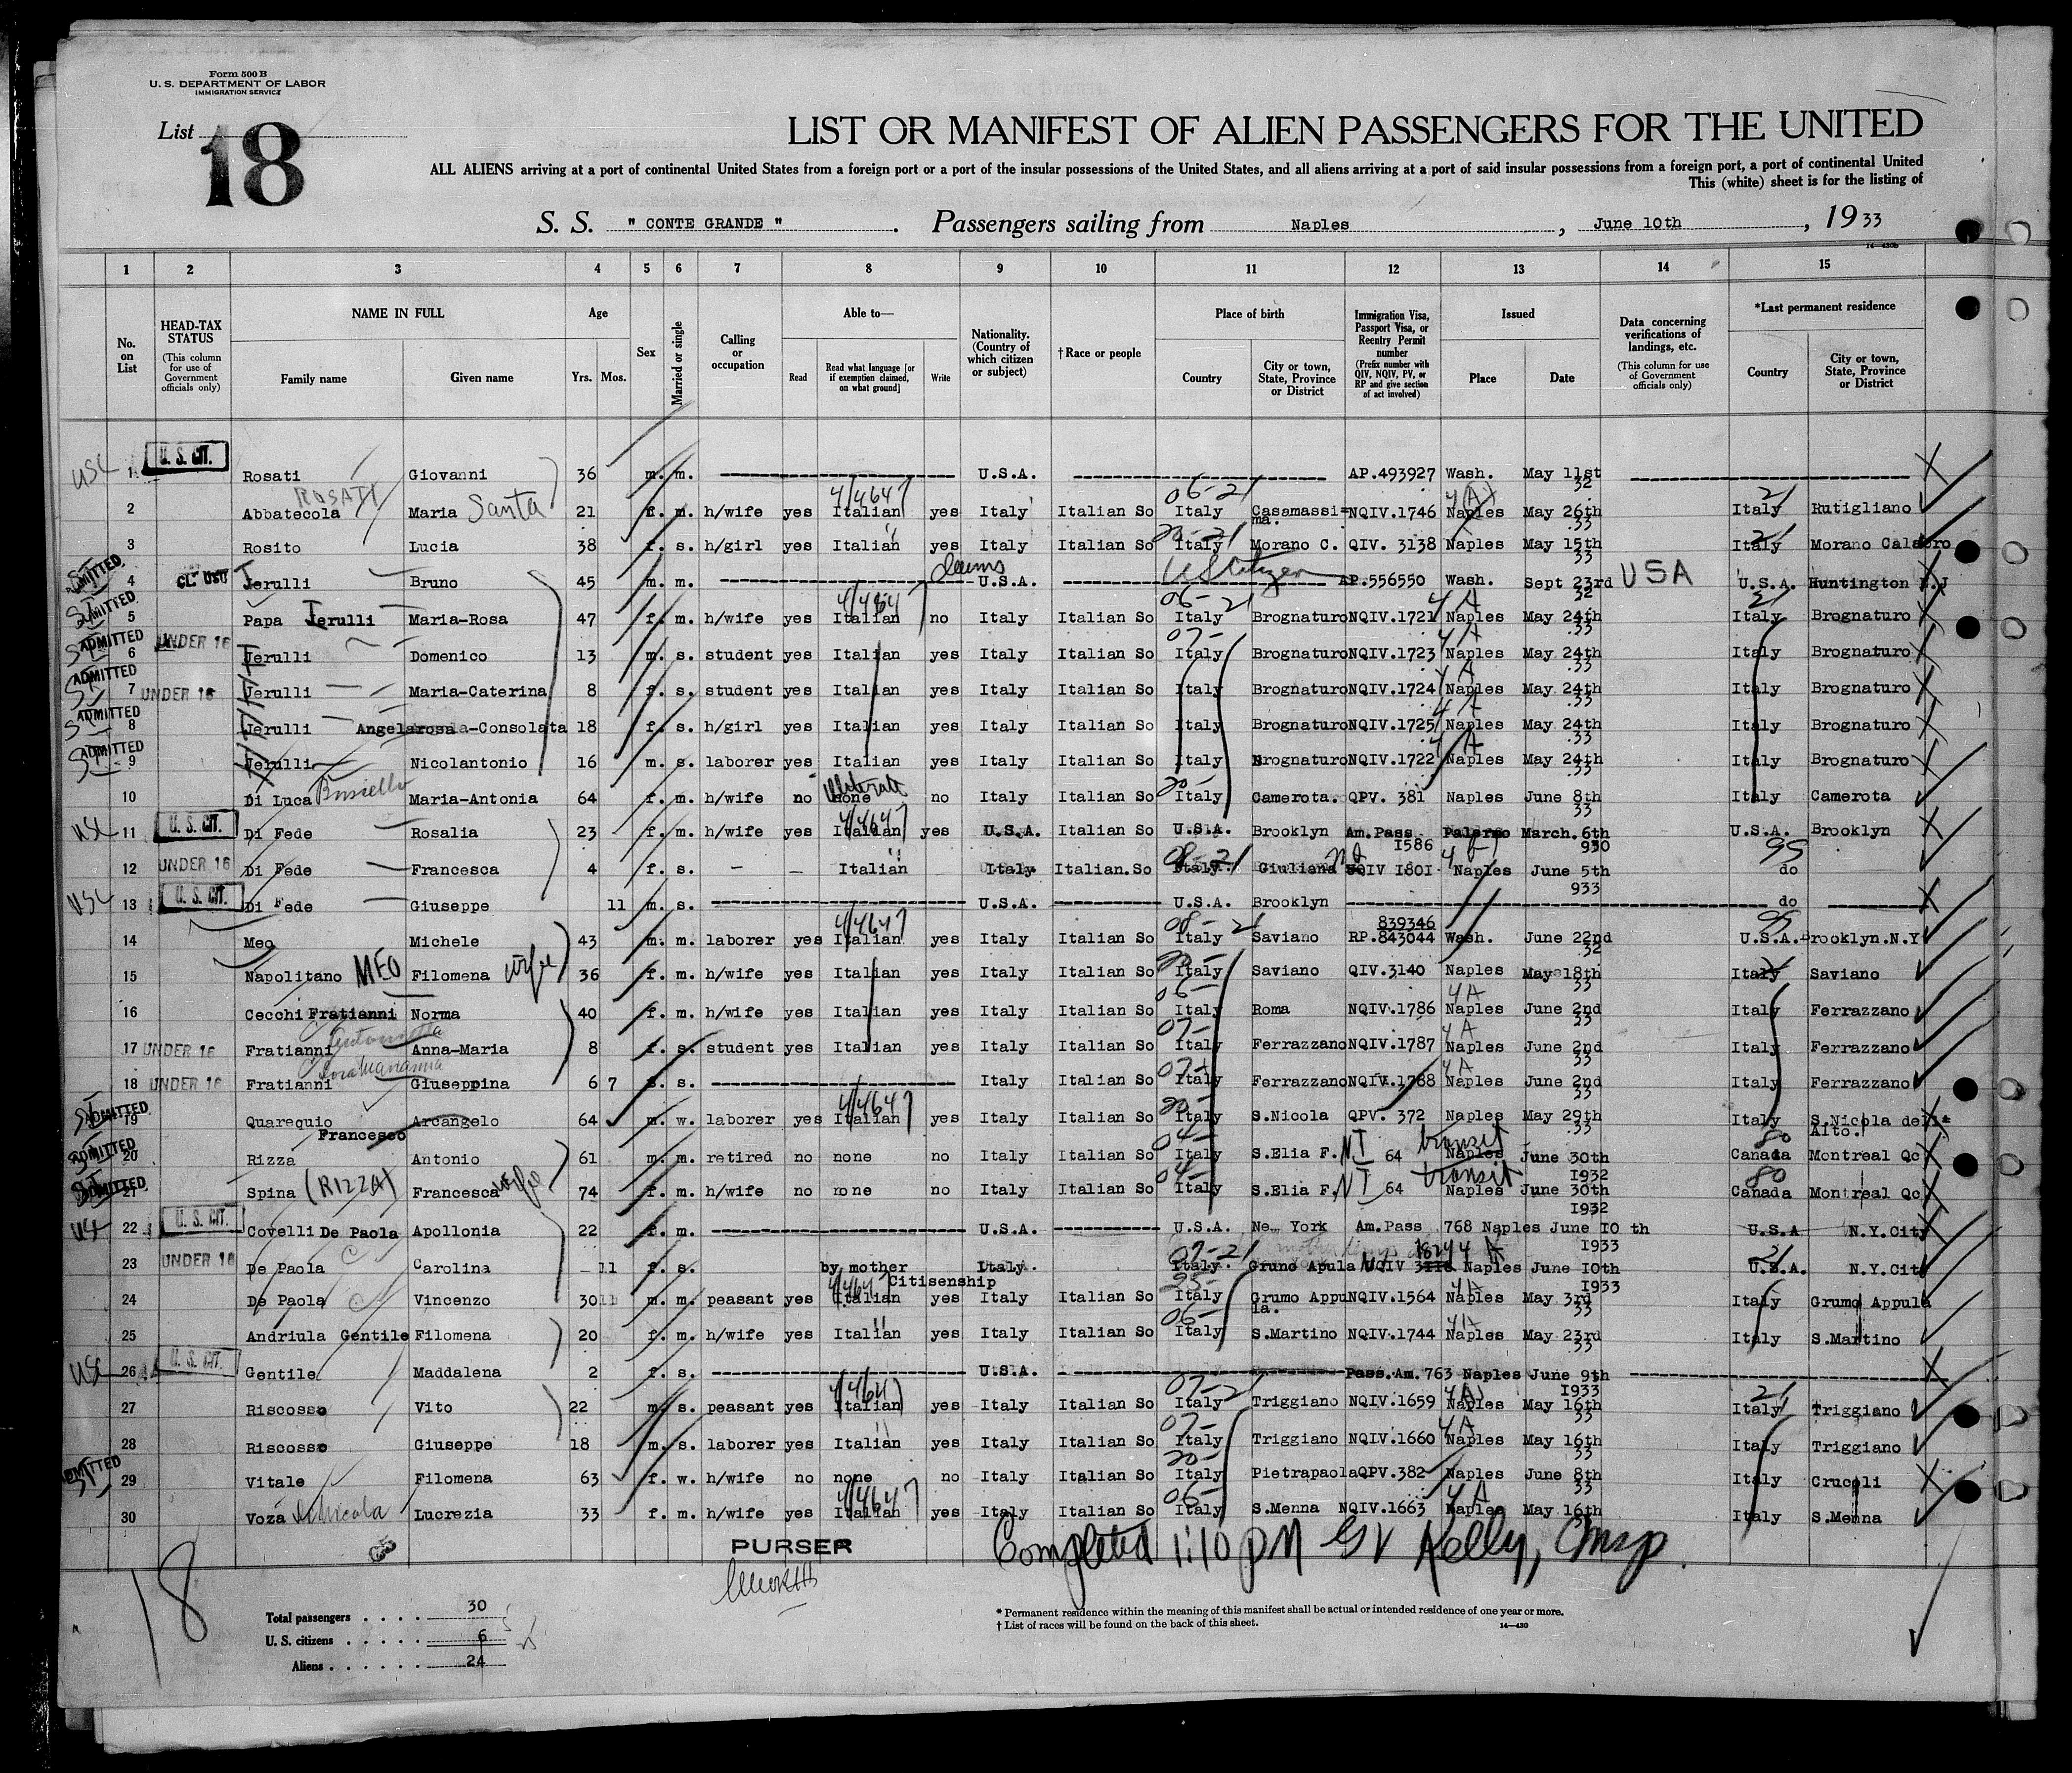 Form 500 B
U. S. DEPARTMENT OF LABOR
IMMIGRATION SERVICE
List 18
LIST OR MANIFEST OF ALIEN PASSENGERS FOR THE UNITED
ALL ALIENS arriving at a port of continental United States from a foreign port or a port of the insular possessions of the United States, and all aliens arriving at a port of said insular possessions from a foreign port, a port of continental United
This (white) sheet is for the listing of
S. S. " CONTE GRANDE " . Passengers sailing from Naples , June 10th , 1933
14—430b
1 2 3 4 5 6 7 8 9 10 11 12 13 14 15
No. on List
HEAD-TAX STATUS (This column for use of Government officials only)
NAME IN FULL Family name Given name
Age Yrs. Mos.
Sex
Married or single
Calling or occupation
Able to— Read Read what language [or if exemption claimed, on what ground] Write
Nationality. (Country of which citizen or subject)
† Race or people
Place of birth Country City or town, State, Province or District
Immigration Visa, Passport Visa, or Reentry Permit number (Prefix number with QIV, NQIV, PV, or RP and give section of act involved)
Issued Place Date
Data concerning verifications of landings, etc. (This column for use of Government officials only)
*Last permanent residence Country City or town, State, Province or District
USC 1 U. S. CIT. Rosati Giovanni 36 m. m. U.S.A. AP.493927 Wash. May 11st 32 X
2 Abbatecola ROSATI Maria Santa 21 f. m. h/wife yes Italian yes Italy Italian So Italy Casamassi= ma. NQIV.1746 Naples May 26th .33 Italy Rutigliano
3 Rosito Lucia 38 f. s. h/girl yes Italian yes Italy Italian So Italy Morano C. QIV. 3138 Naples May 15th 33 Italy Morano Calabro
ADMITTED 4 CL. USC Jerulli Bruno 45 m. m. claims U.S.A. US Citizen AP.556550 Wash. Sept 23rd 32 USA U.S.A. Huntington N.J
ADMITTED 5 Papa Jerulli Maria-Rosa 47 f. m. h/wife yes Italian no Italy Italian So Italy Brognaturo NQIV.1721 Naples May 24th .33 Italy Brognaturo X
ADMITTED 6 UNDER 16 Jerulli Domenico 13 m. s. student yes Italian yes Italy Italian So Italy Brognaturo NQIV.1723 Naples May 24th .33 Italy Brognaturo X
ADMITTED 7 UNDER 16 Jerulli Maria-Caterina 8 f. s. student yes Italian yes Italy Italian So Italy Brognaturo NQIV.1724 Naples May 24th .33 Italy Brognaturo X
ADMITTED 8 Jerulli Angelarosa-Consolata 18 f. s. h/girl yes Italian yes Italy Italian So Italy Brognaturo NQIV.1725 Naples May 24th .33 Italy Brognaturo X
ADMITTED 9 Jerulli Nicolantonio 16 m. s. laborer yes Italian yes Italy Italian So Italy Brognaturo NQIV.1722 Naples May 24th 33 Italy Brognaturo X
10 Di Luca Maria-Antonia 64 f. m. h/wife no none no Italy Italian So Italy Camerota. QPV. 381 Naples June 8th 33 Italy Camerota
USC 11 U. S. CIT. Di Fede Rosalia 23 f. m. h/wife yes Italian yes U.S.A. Italian So U.S.A. Brooklyn Am.Pass 1586 Palermo March.6th 930 U.S.A. Brooklyn X
12 UNDER 16 Di Fede Francesca 4 f. s. - - Italian Italy Italian.So Italy. Giuliana NQIV 1801 Naples June 5th 933 do
USC 13 U. S. CIT. Di Fede Giuseppe 11 m. s. U.S.A. U.S.A. Brooklyn do X
14 Meo Michele 43 m. m. laborer yes Italian yes Italy Italian So Italy Saviano 839346 RP.843044 Wash. June 22nd 32 U.S.A. Brooklyn.N.Y
15 Napolitano MEO Filomena wife 36 f. m. h/wife yes Italian yes Italy Italian So Italy Saviano QIV.3140 Naples May 18th 33 Italy Saviano
16 Cecchi Fratianni Norma 40 f. m. h/wife yes Italian yes Italy Italian So Italy Roma NQIV.1786 Naples June 2nd 33 Italy Ferrazzano
17 UNDER 16 Fratianni Anna-Maria 8 f. s. student yes Italian yes Italy Italian So Italy Ferrazzano NQIV.1787 Naples June 2nd 33 Italy Ferrazzano
18 UNDER 16 Fratianni Giuseppina 6 7 f. s. Italy Italian So Italy Ferrazzano NQIV.1788 Naples June 2nd 33 Italy Ferrazzano
ADMITTED 19 Quarequio Arcangelo Francesco 64 m. w. laborer yes Italian yes Italy Italian So Italy S.Nicola QPV. 372 Naples May 29th .33 Italy S.Nicola dell* Alto.
ADMITTED 20 Rizza Antonio 61 m. m. retired no none no Italy Italian So Italy S.Elia F. NT 64 transit Naples June 30th 1932 Canada Montreal Qc X
ADMITTED 21 Spina (RIZZA) Francesca wife 74 f. m. h/wife no none no Italy Italian So Italy S.Elia F. NT 64 transit Naples June 30th 1932 Canada Montreal Qc X
22 U. S. CIT. Covelli De Paola Apollonia 22 f. m. U.S.A. U.S.A. New York Am.Pass 768 Naples June 10 th 1933 U.S.A N.Y.City
23 UNDER 16 De Paola Carolina 11 f. s. by mother Citisenship Italy. Italy. Grumo Apula NQIV 1824 Naples June 10th 1933 U.S.A. N.Y.City
24 De Paola Vincenzo 30 m. m. peasant yes Italian yes Italy Italian So Italy Grumo Appu la. NQIV.1564 Naples May 3rd 33 Italy Grumo Appula
25 Andriula Gentile Filomena 20 f. m. h/wife yes Italian yes Italy Italian So Italy S.Martino NQIV.1744 Naples May 23rd .33 Italy S.Martino
USC 26 U. S. CIT. Gentile Maddalena 2 f. s. U.S.A. Pass.Am.763 Naples June 9th 1933 X
27 Riscosso Vito 22 m. s. peasant yes Italian yes Italy Italian So Italy Triggiano NQIV.1659 Naples May 16th 33 Italy Triggiano
28 Riscosso Giuseppe 18 m. s. laborer yes Italian yes Italy Italian So Italy Triggiano NQIV.1660 Naples May 16th 33 Italy Triggiano
ADMITTED 29 Vitale Filomena 63 f. w. h/wife no none no Italy Italian So Italy Pietrapaola QPV.382 Naples June 8th 33 Italy Crucoli X
30 Voza Lucrezia 33 f. m. h/wife yes Italian yes Italy Italian So Italy S.Menna NQIV.1663 Naples May 16th Italy S.Menna
PURSER
Completed 1:10 PM GV Kelly, Insp.
18
Total passengers . . . . 30
U. S. citizens . . . . . 6
Aliens . . . . . . 24
* Permanent residence within the meaning of this manifest shall be actual or intended residence of one year or more.
† List of races will be found on the back of this sheet. 14—430